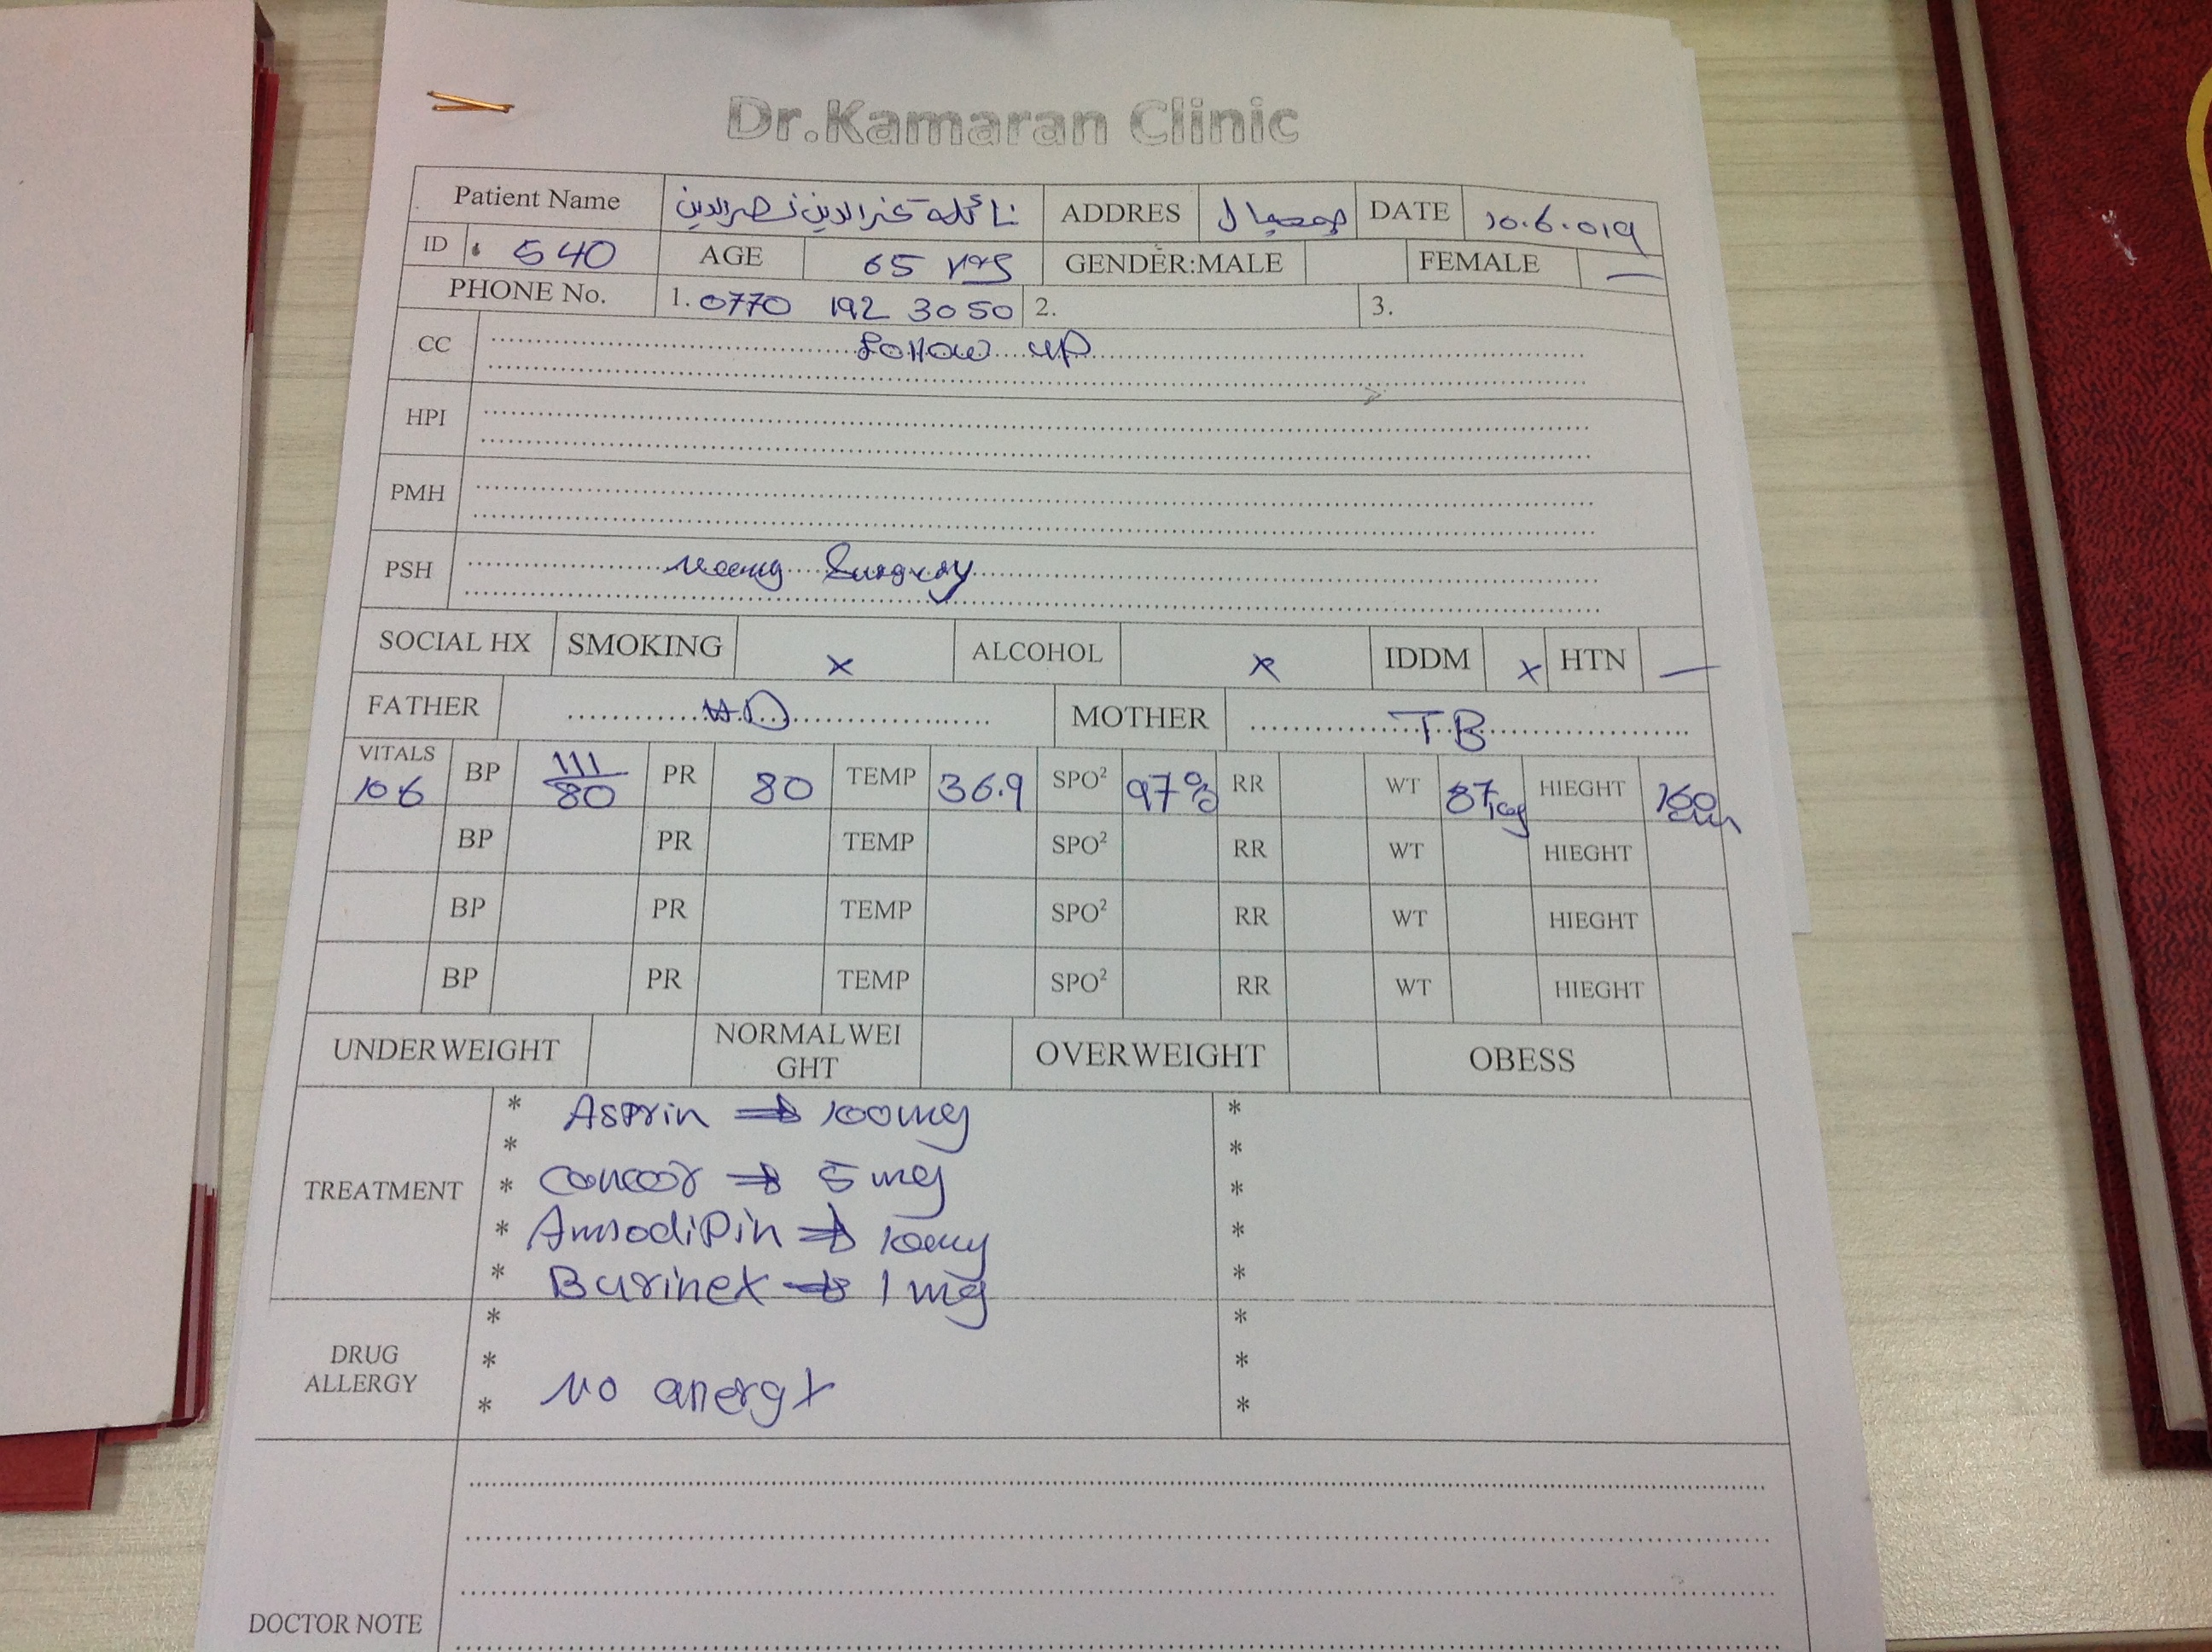 Dr.Kamaran Clinic
Patient Name نائلة عزالدين نصرالدين ADDRES چمچمال DATE 10.6.019
ID 540 AGE 65 yrs GENDER:MALE FEMALE —
PHONE No. 1. 0770 192 3050 2. 3.
CC Follow up
HPI
PMH
PSH Surgery
SOCIAL HX SMOKING x ALCOHOL x IDDM x HTN —
FATHER H.D MOTHER TB
VITALS 106 BP 111/80 PR 80 TEMP 36.9 SPO² 97% RR WT 87kg HIEGHT 160cm
BP PR TEMP SPO² RR WT HIEGHT
BP PR TEMP SPO² RR WT HIEGHT
BP PR TEMP SPO² RR WT HIEGHT
UNDERWEIGHT NORMALWEI
GHT OVERWEIGHT OBESS
TREATMENT
* Asprin ⇒ 100mg *
* *
* concor ⇒ 5 mg *
* Amlodipin ⇒ 10mg *
* Burinex → 1 mg *
DRUG
ALLERGY
* *
* *
* No allergy *
DOCTOR NOTE